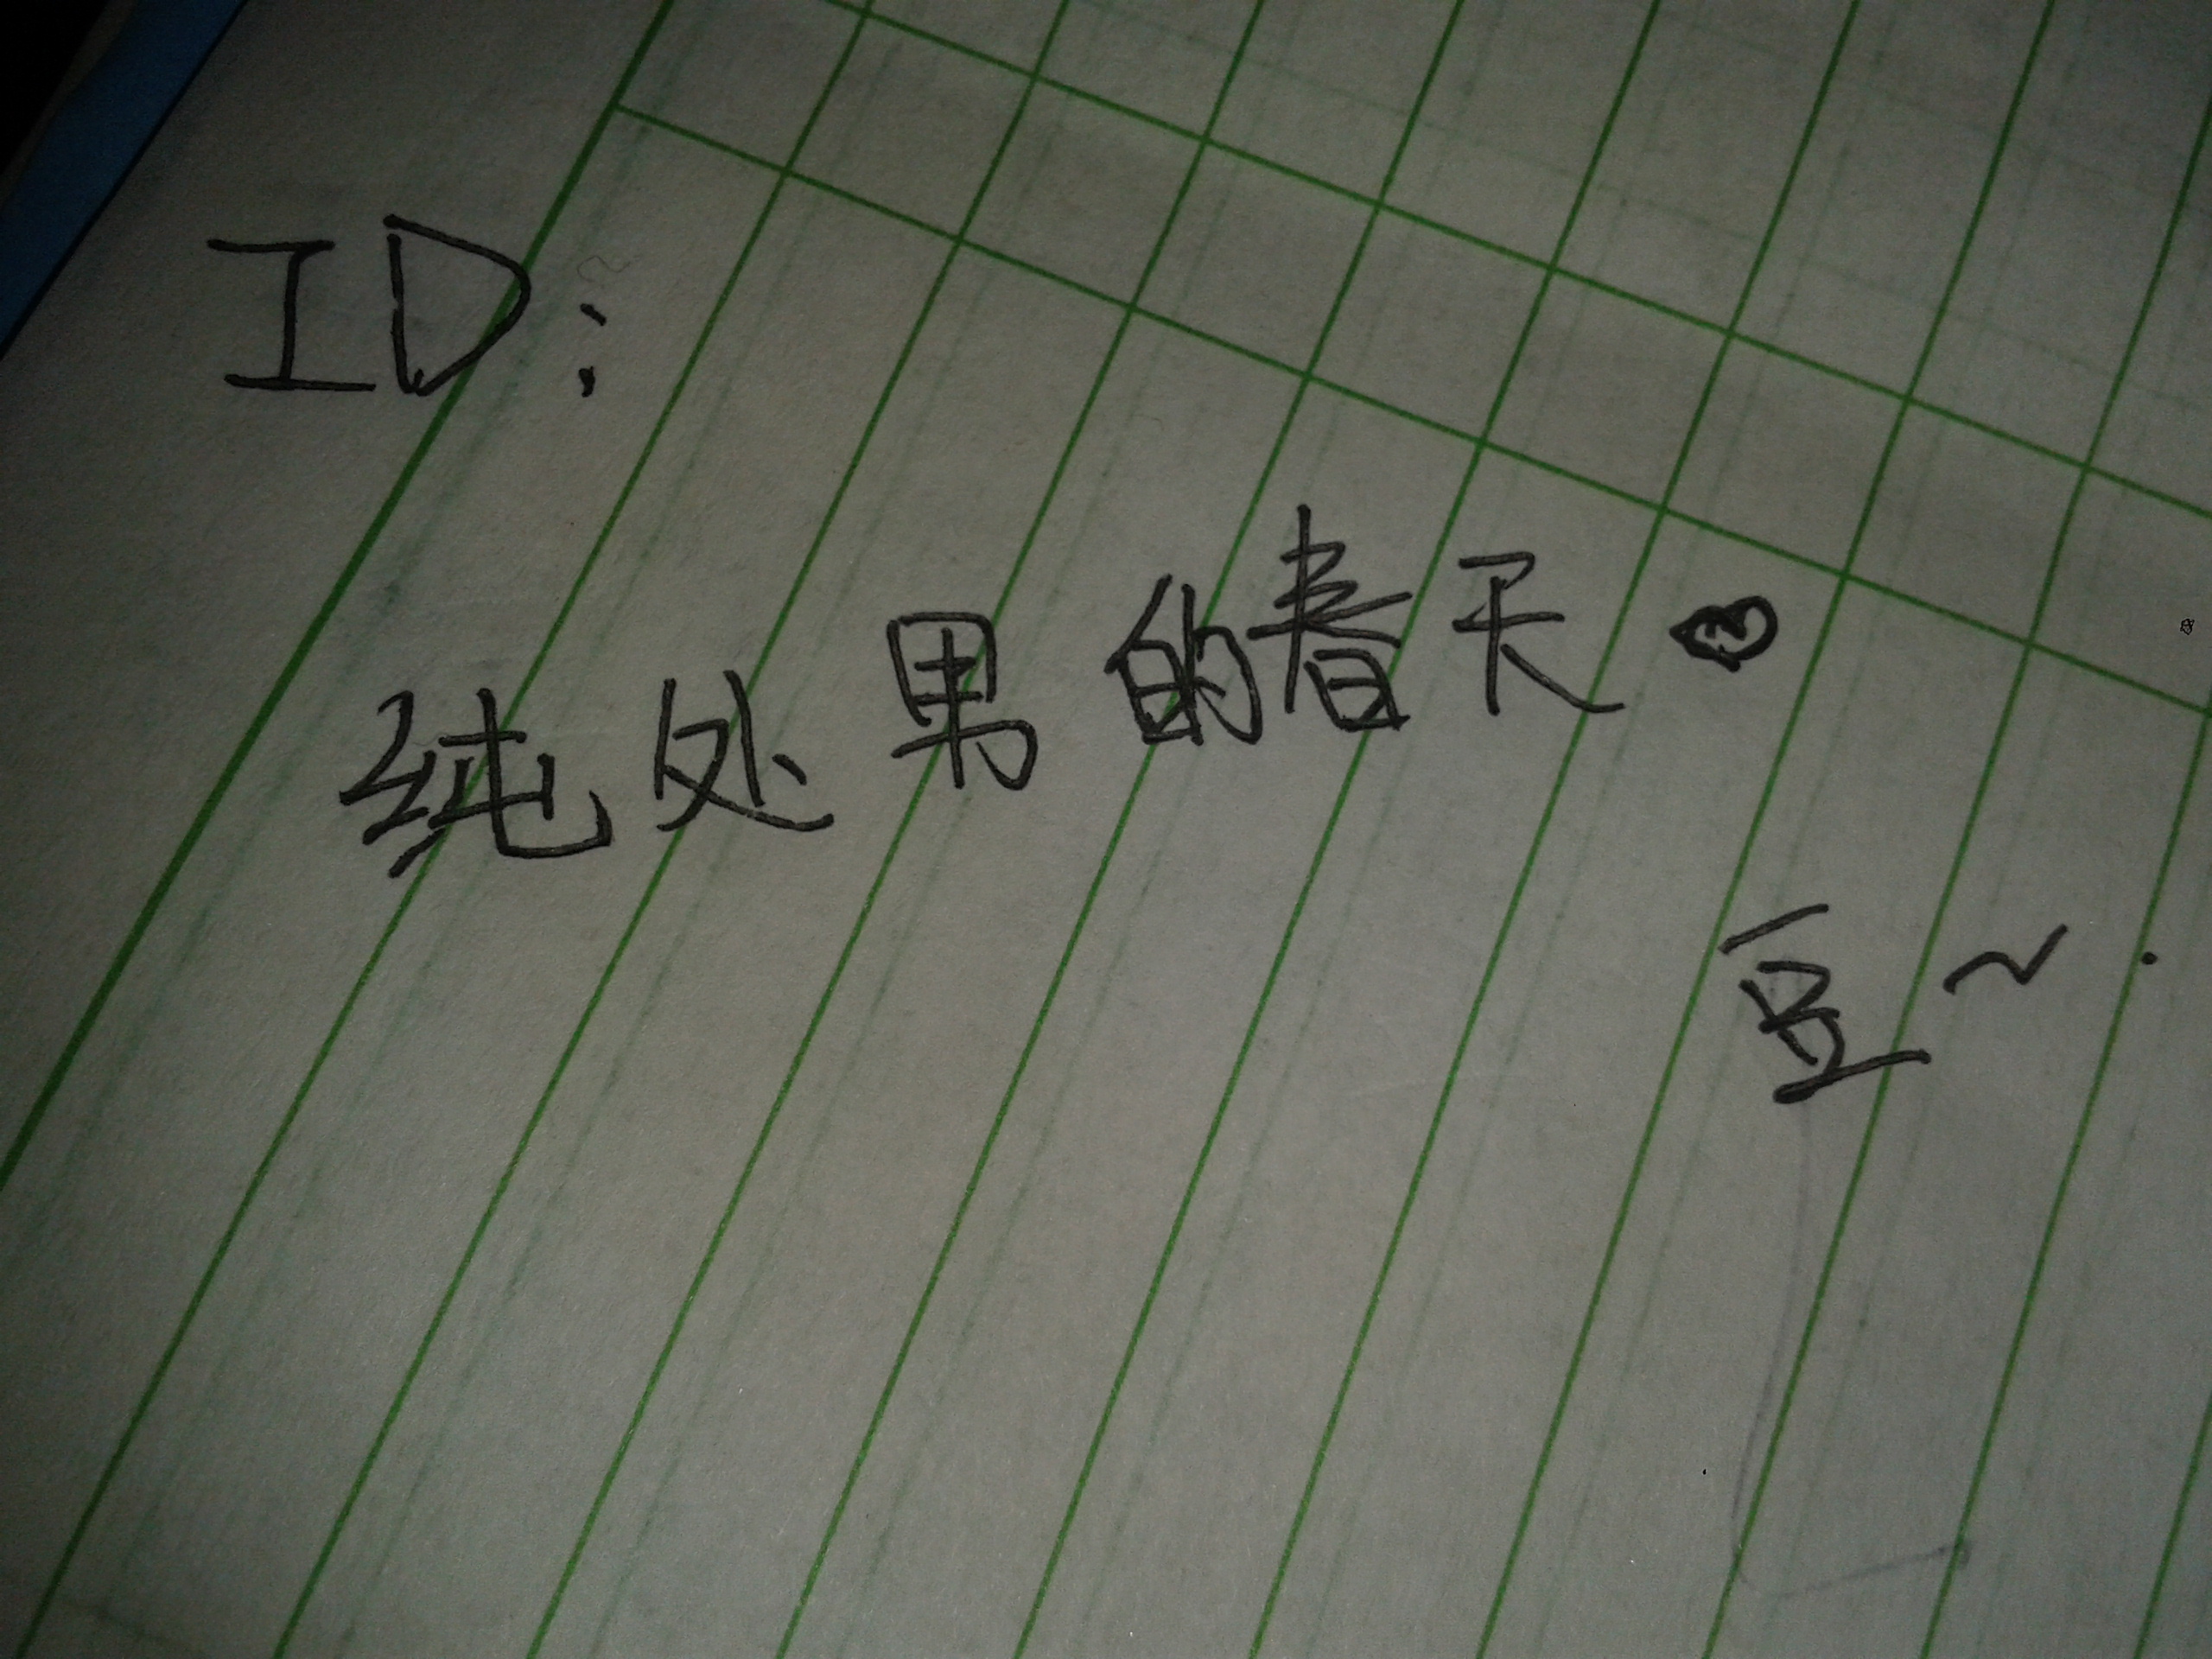 ID：
纯处男的春天
豆~.